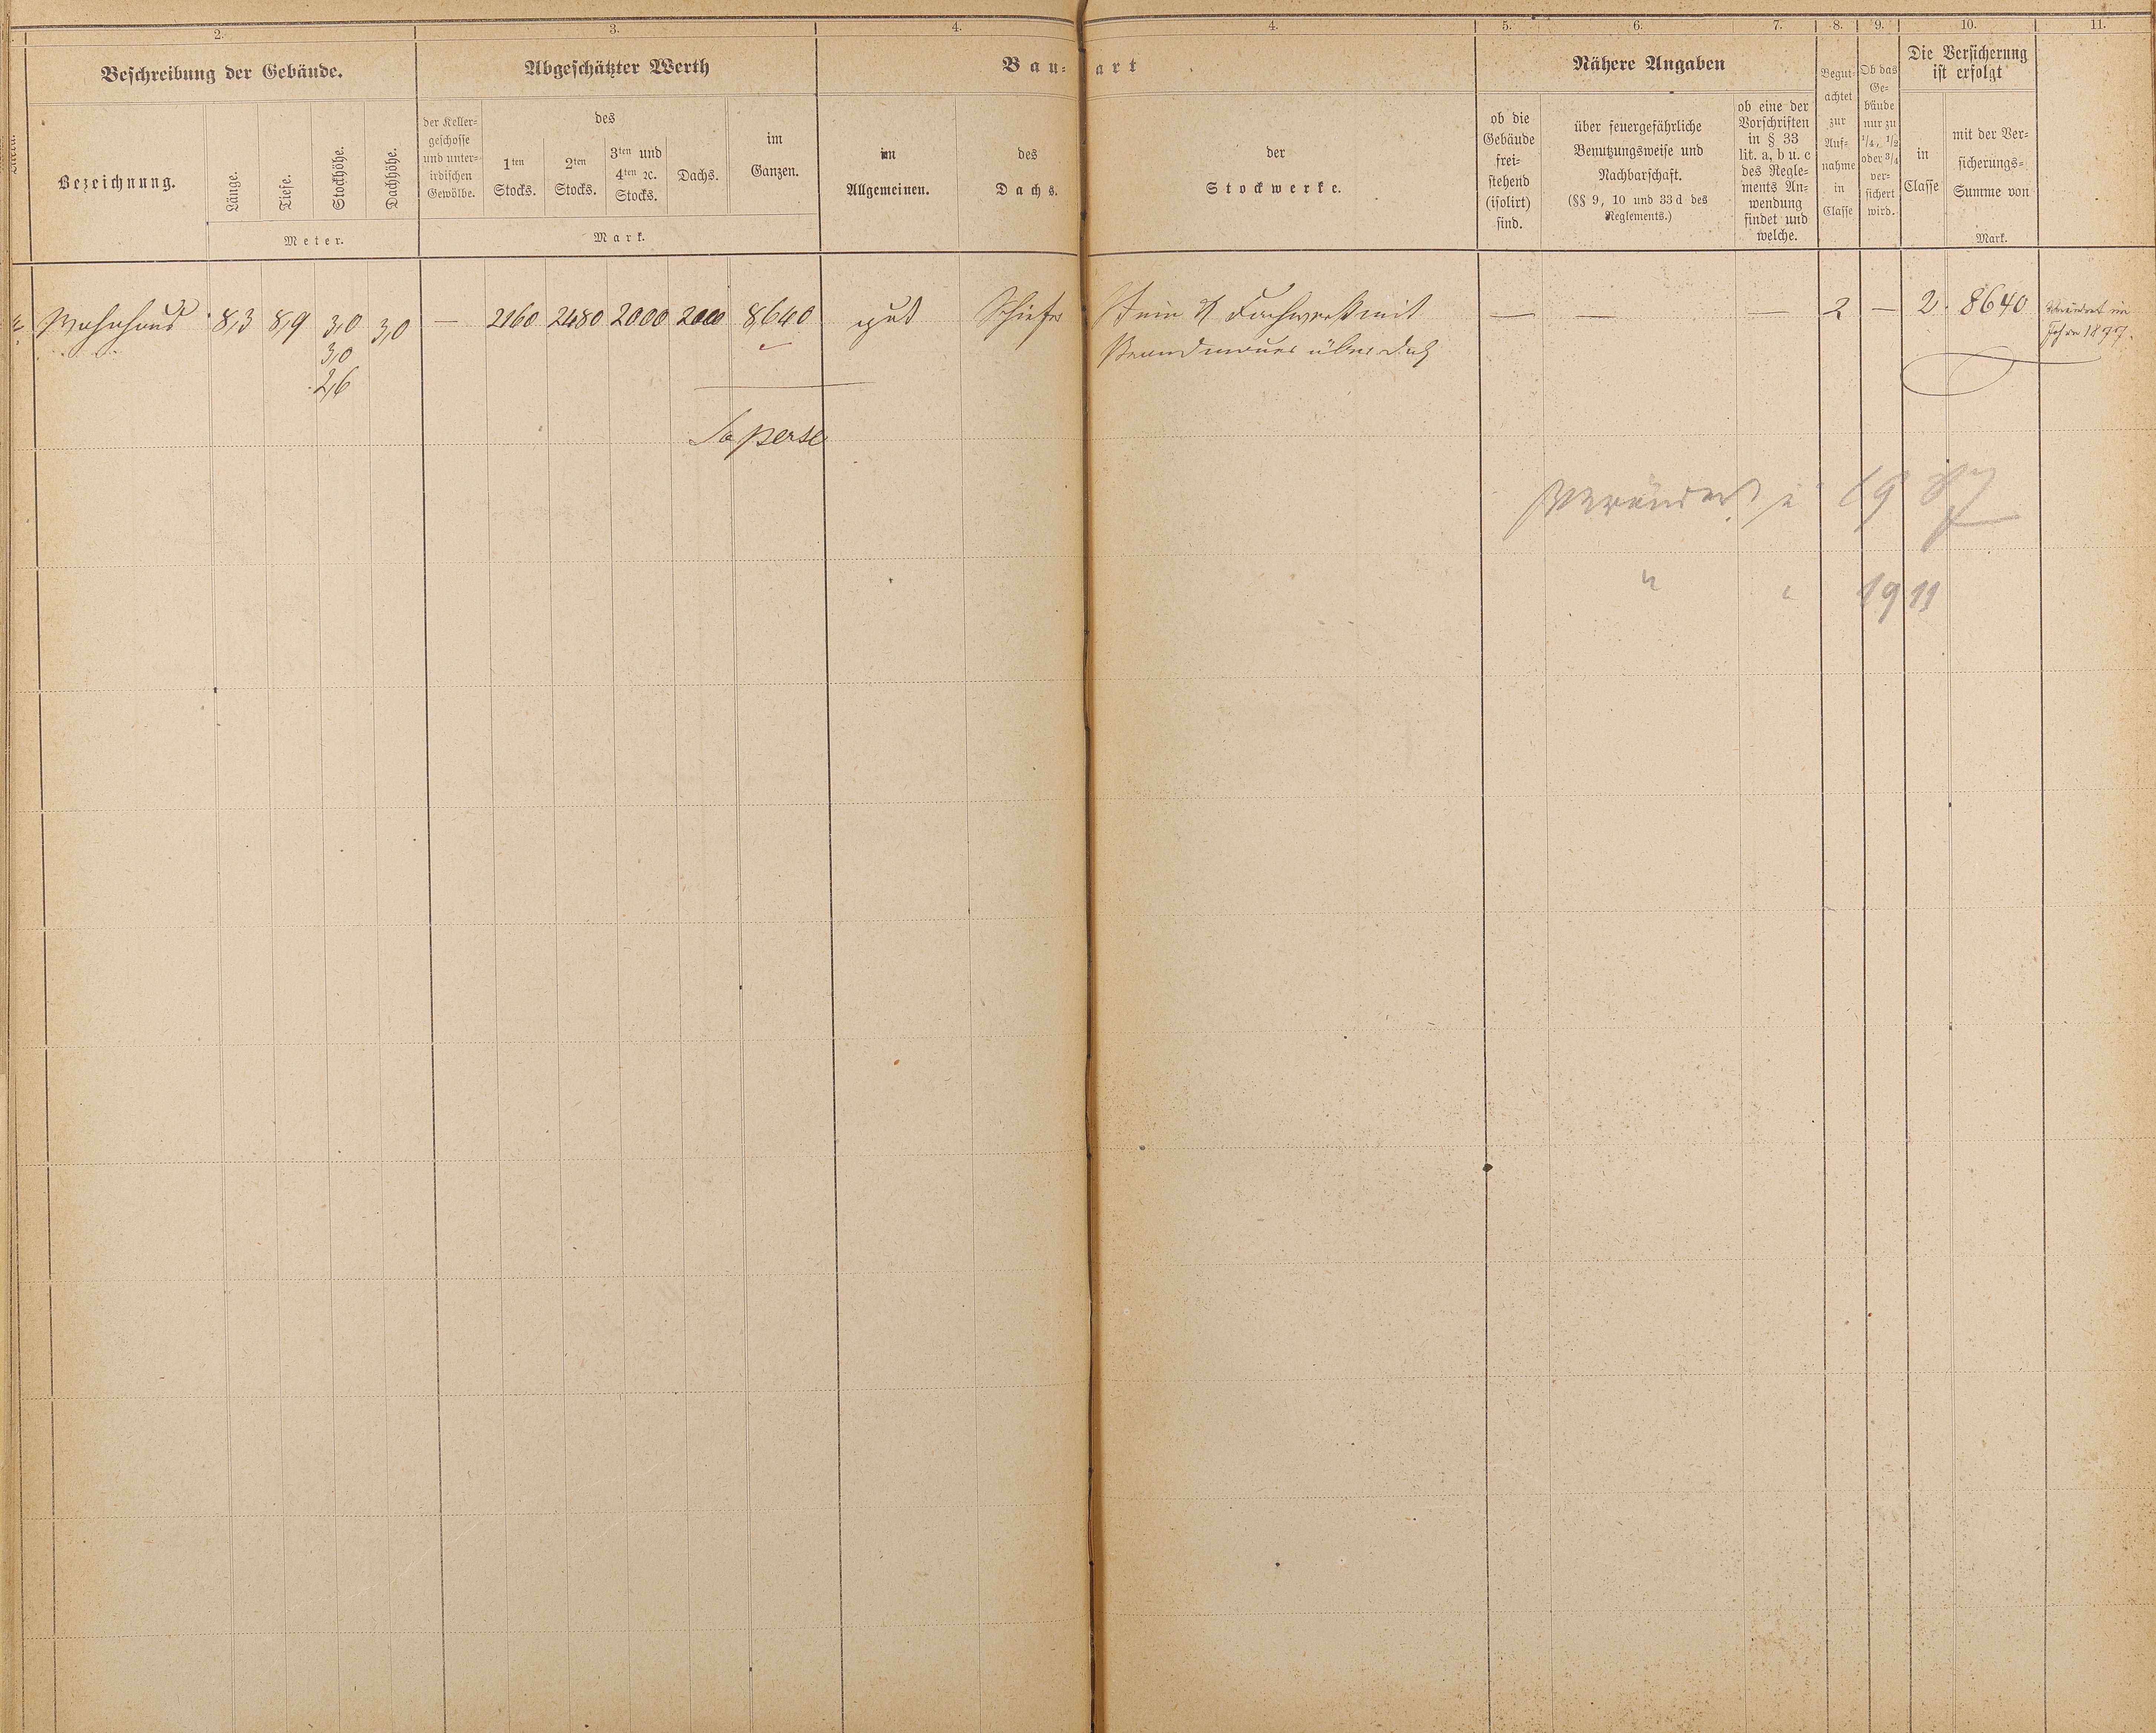 2. 3. 4. 4. 5. 6. 7. 8. 9. 10. 11.
Beschreibung der Gebäude.
Bezeichnung.
Länge.
Tiefe.
Stockhöhe.
Dachhöhe.
Meter.
Abgeschätzter Werth
der Keller-
geschosse
und unter-
irdischen
Gewölbe.
des
1ten
Stocks.
2ten
Stocks.
3ten und
4ten ꝛc.
Stocks.
Dachs.
im
Ganzen.
Mark.
Bau- art
im
Allgemeinen.
des
Dachs.
der
Stockwerke.
Nähere Angaben
ob die
Gebäude
frei-
stehend
(isolirt)
sind.
über feuergefährliche
Benutzungsweise und
Nachbarschaft.
(§§ 9, 10 und 33 d des
Reglements.)
ob eine der
Vorschriften
in § 33
lit. a, b u. c
des Regle-
ments An-
wendung
findet und
welche.
Begut-
achtet
zur
Auf-
nahme
in
Classe
Ob das
Ge-
bäude
nur zu
1/4, 1/2
oder 3/4
ver-
sichert
wird.
Die Versicherung
ist erfolgt
in
Classe
mit der Ver-
sicherungs-
Summe von
Mark.
Wohnhaus 8,3 8,9 3,0 3,0 — 2160 2480 2000 2000 8640 gut Schiefer Stein & Fachwerk mit — — — 2 — 2. 8640 im
3,0 Brandmauer über Dach Jahre 1877.
2,6
Sa per se
Verändert i 1987
" " 1911